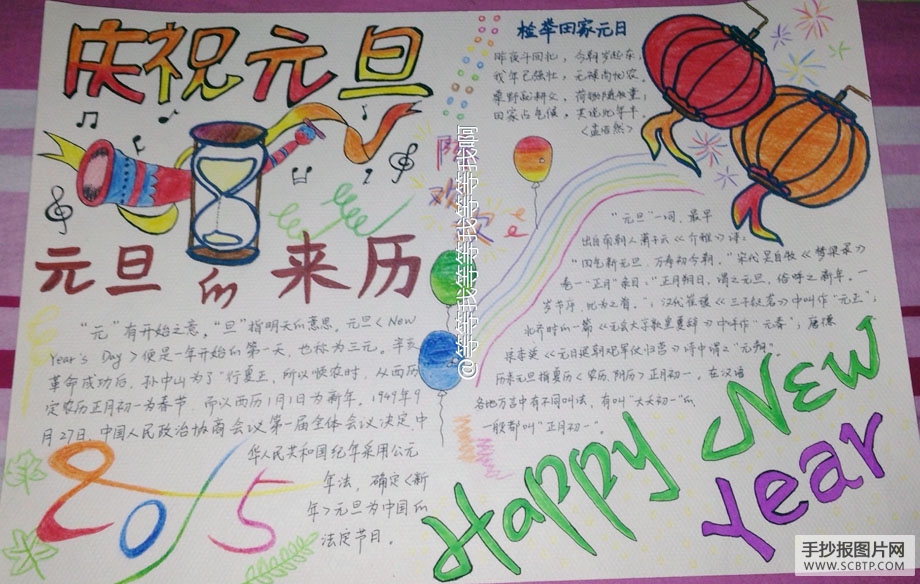 庆祝元旦
元旦的来历
“元”有开始之意，“旦”指明天的意思。元旦<New
Year's Day>便是一年开始的第一天，也称为三元。辛亥
革命成功后，孙中山为了“行夏正，所以
农时，从西历
定农历正月初一为春节，而以西历1月1日为新年。1949年9
月27日，中国人民政治协商会议第一届全体会议决定中
华人民共和国纪年采用公元
年法，确定<新
年>元旦为中国的
法定节日。
2015
田家元日
昨夜斗回北，今朝岁起东；
我年已强壮，无禄尚忧农。
桑野
耕父，荷锄随牧童；
田家占气候，共说此年丰。
<孟浩然>
欢
“元旦”一词，最早
出自南朝人萧子云《介雅》诗：
“四气新元旦，万寿初今朝。”宋代吴自牧《梦粱录》
卷一“正月”条目：“正月朔日，谓之元旦，俗呼之新年。一
岁节序，此为之首。”；汉代崔瑗《三子钗
》中叫作“元正”；
中叫作“元春”；唐德
《元日
朝观军仗归营》诗中谓之“元朔”。
历来元旦指夏历<农历，阴历>正月初一。在汉语
各地方言中有不同叫法，有叫“大天初一”的
一般都叫“正月初一”。
Happy New
Year
@等等我等等我等等等我啊
手抄报图片网
WWW.SCBTP.COM